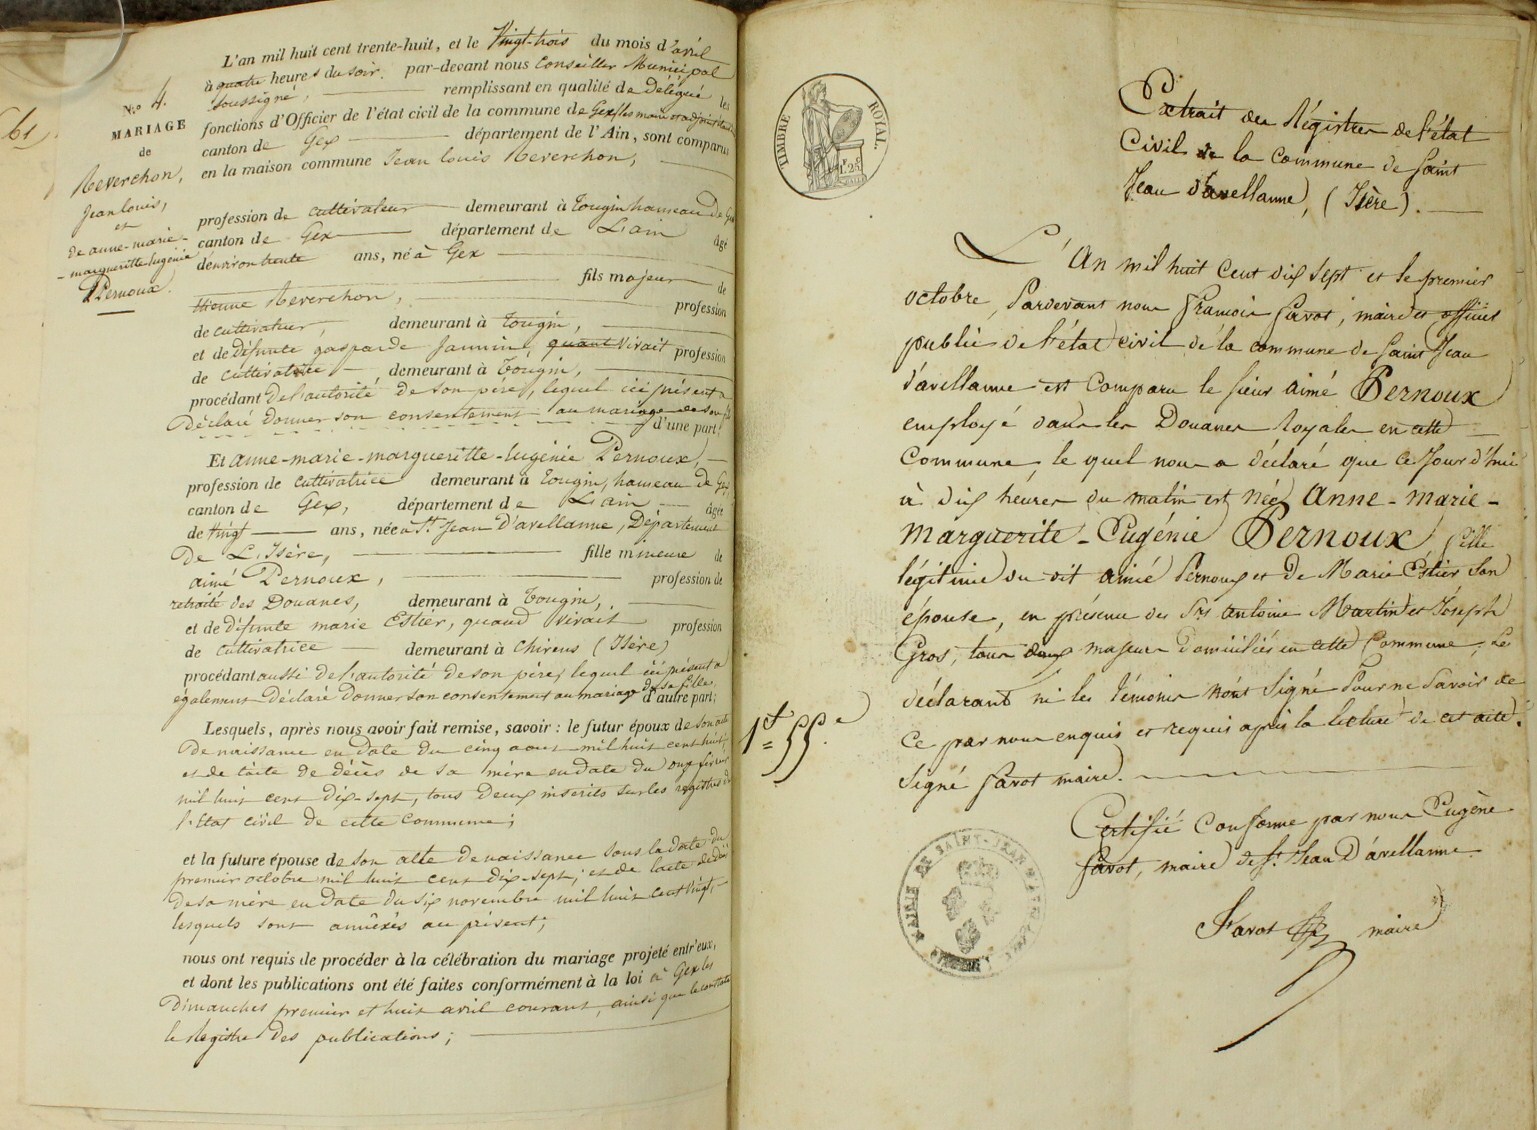 61
N.o 4.
MARIAGE
de
Reverchon,
Jean louis,
et
de anne-marie-
-margueritte-Eugénie
Pernoux.
L'an mil huit cent trente-huit, et le Vingt-trois du mois d'avril
à quatre heures du soir, par-devant nous Conseiller Municipal
soussigné, remplissant en qualité de Délégué les
fonctions d'Officier de l'état civil de la commune de Gex,
canton de Gex département de l'Ain, sont comparus
en la maison commune Jean louis Reverchon,
profession de cultivateur demeurant à Tougin hameau de Gex
canton de Gex département de L'ain âgé
d'environ trente ans, né à Gex
fils majeur de
Reverchon, profession
de cultivateur, demeurant à Tougin,
et de défunte gasparde Jannin, quand Vivait profession
de cultivatrice demeurant à Tougin,
procédant de l'autorité de son père, lequel ici présent a
Déclaré donner son consentement au mariage de son fils
d'une part;
Et anne-marie-margueritte-Eugénie Pernoux,
profession de cultivatrice demeurant à Tougin, hameau de Gex,
canton de Gex, département de L'ain âgée
de vingt ans, née à St Jean D'avellanne, Département
De L'Isère, fille mineure de
aimé Pernoux, profession de
retraité des Douanes, demeurant à Tougin,
et de Défunte marie Estier, quand vivait profession
de Cultivatrice demeurant à Chirens (Isère)
procédant aussi de l'autorité de son père, lequel ici présent a
également Déclaré Donner son consentement au mariage de sa fille,
d'autre part;
Lesquels, après nous avoir fait remise, savoir: le futur époux de son acte
De naissance en date du cinq aout mil huit cent huit,
et de l'acte de décès de sa mère en date du onze février
mil huit cent Dix-sept, tous Deux inscrits sur les registres de
l'Etat civil de cette Commune;
et la future épouse de son acte de naissance sous la date du
premier octobre mil huit cent dix-sept; et de l'acte de décès
de sa mère en date du six novembre mil huit cent Vingt,
lesquels sont annéxés au présent;
nous ont requis de procéder à la célébration du mariage projeté entr'eux,
et dont les publications ont été faites conformément à la loi à Gex les
Dimanches premier et huit avril courant, ainsi que le constate
le Registre Des publications;
TIMBRE ROYAL.
1F 25
Extrait des Régistres de l'état
Civil de la commune de Saint
Jean d'avellanne, (Isère).
L'An mil huit Cent dix sept et le premier
octobre, Pardevant nous François favot, maire et officier
public de l'état civil de la commune de Saint Jean
d'avellanne est Comparu le sieur aimé Pernoux
employé dans les Douanes Royales en cette
Commune, le quel nous a déclaré que ce Jour d'hui
à dix heures du matin est née Anne-marie-
marguerite-Eugénie Pernoux fille
légitime du dit aimé Pernoux et De Marie Estier son
épouse, en présence des Srs antoine Martin et Joseph
Gros, tous deux majeurs domiciliés en cette Commune, Le
déclarant ni les témoins n'ont signé pour ne savoir de
ce par nous enquis et requis après la lecture de cet acte.
Signé favot maire.
1f 55c
Certifié Conforme par nous Eugène
favot, maire de St Jean D'avellanne.
Favot maire
MAIRIE DE SAINT-JEAN D'AVELLANNE